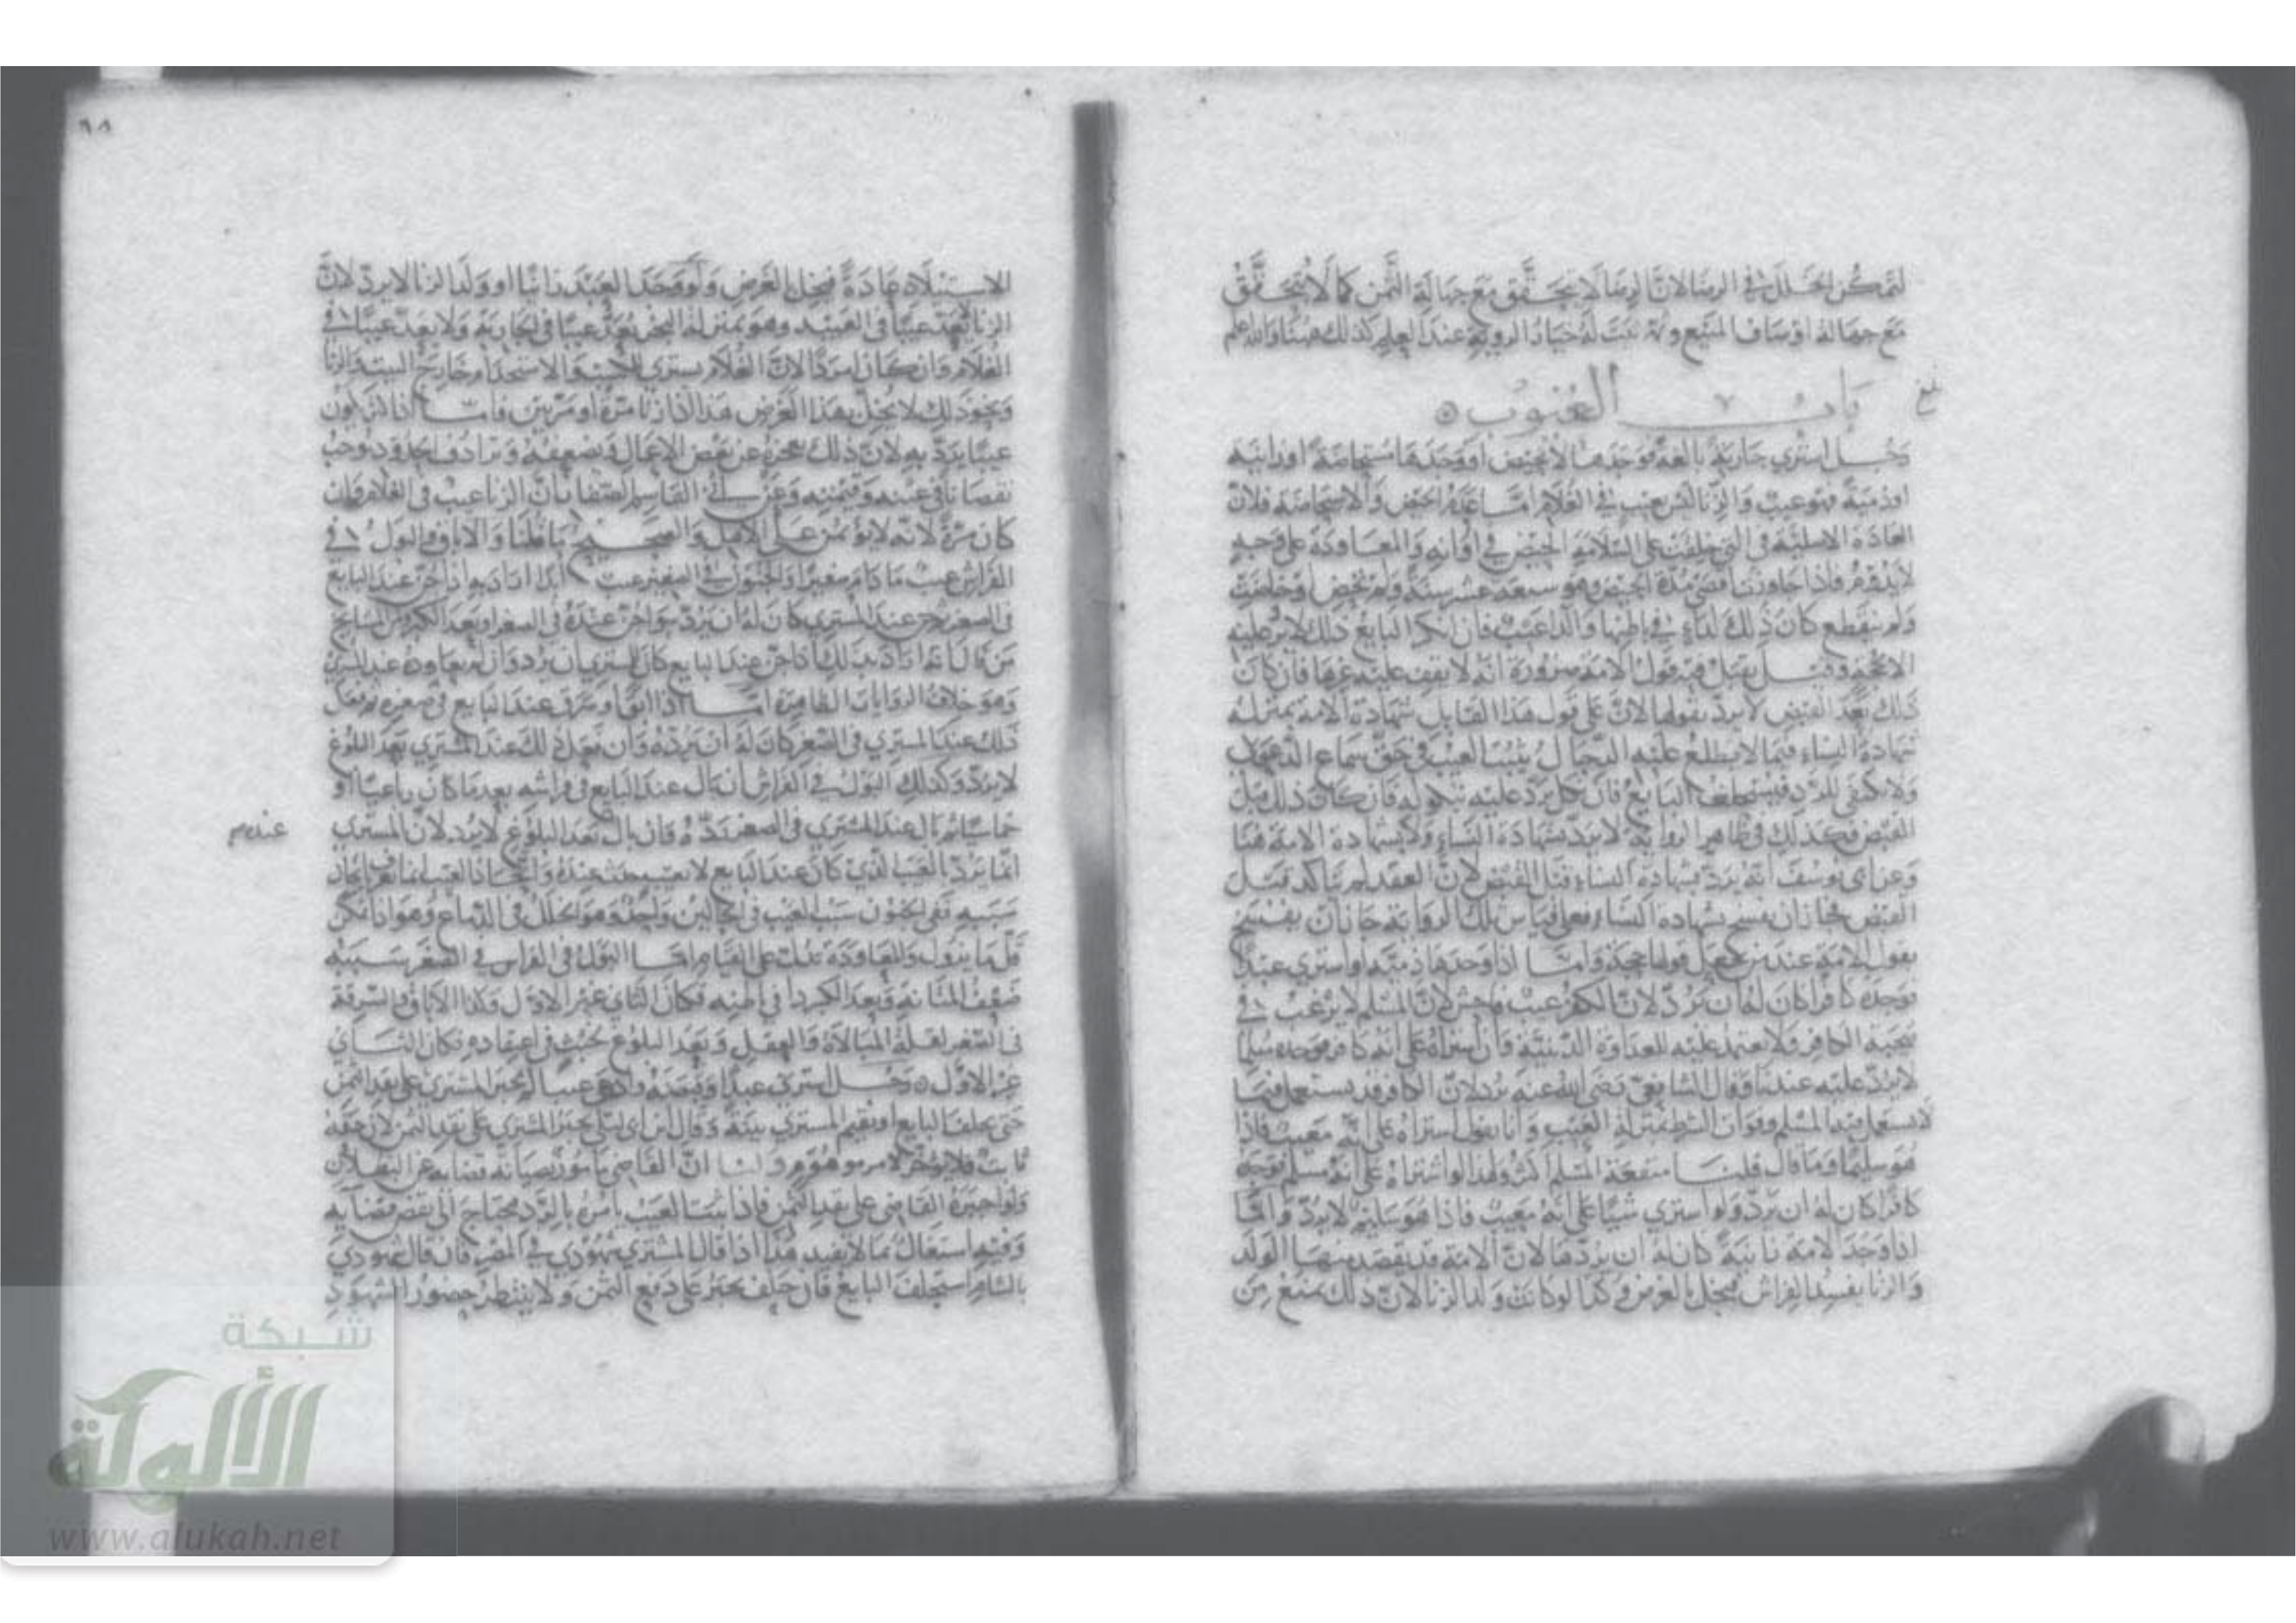 لتمكن الخلل في الرضا لان الرضا لا يتحقق مع جهالة الثمن كما لا يتحقق
مع جهالة اوصاف المبيع وثمة يثبت له خيار الروية عند العلم كذلك هنا والله اعلم
باب العيوب
رجل اشترى جارية بالغة فوجدها لا تحيض او وجدها مستحاضة او زانية
او ذمية فهو عيب والزنا ليس بعيب في الغلام اما عدم الحيض والاستحاضة فلان
العادة الاصلية التي خلقت على السلامة الحيض في اوانه والمعاودة على وجه
لا يدوم فاذا جاوزت اقصى مدة الحيض وهو سبعة عشر سنة ولم تحض او حاضت
ولم ينقطع كان ذلك لداء في باطنها والداء عيب فان انكر البايع ذلك لا يرد عليه
الا بحجة وقيل يقبل فيه قول الامة ضرورة انه لا يقف عليه غيرها فان كان
ذلك بعد القبض لا يرد بقولها لان على قول هذا القايل شهادة الامة بمنزلة
شهادة النساء فيما لا يطلع عليه الرجال يثبت العيب في حق سماع الدعوى
ولا يكفي للرد فيستحلف البايع فان نكل يرد عليه بنكوله فان كان ذلك قبل
القبض فكذلك في ظاهر الرواية لا يرد بشهادة النساء ولا بشهادة الامة هنا
وعن ابي يوسف انه يرد بشهادة النساء قبل القبض لان العقد لم يتاكد قبل
القبض فجاز ان يفسخ بشهادة النساء فعلى قياس تلك الرواية جاز ان يفسخ
بقول الامة عند من يجعل قولها حجة واما اذا وجدها ذمية او اشترى عبدا
فوجده كافرا كان له ان يرد لان الكفر عيب فاحش لان المسلم لا يرغب في
صحبة الكافر ولا يعتمد عليه للعداوة الدينية وان اشتراه على انه كافر فوجده مسلما
لا يرد عليه عندنا وقال الشافعي رضي الله عنه يرد لان الكافر قد يستعمل فيما
لا يستعمل فيه المسلم وفوات الشرط بمنزلة العيب وانا نقول اشتراه على انه معيب فاذا
هو سليم وما قال قلنا منفعة المسلم اكثر ولهذا لو اشتراه على انه مسلم فوجده
كافرا كان له ان يرد ولو اشترى شيا على انه معيب فاذا هو سليم لا يرد واما
اذا وجد الامة زانية كان له ان يردها لان الامة قد يقصد منها الولد
والزنا يفسد الفراش فيخل بالغرض وكذا لو كانت ولد الزنا لان ذلك يمنع من
٩٨
الاستيلاد عادة فيخل بالغرض ولو وجد العبد زانيا او ولد الزنا لا يرد لان
الزنا لا يعد عيبا في العبيد وهو بمنزلة البخر يعد عيبا في الجارية ولا يعد عيبا في
الغلام وان كان امردا لان الغلام يشترى للخدمة والاستخدام خارج البيت والزنا
ونحو ذلك لا يخل بهذا الغرض هذا اذا زنا مرة او مرتين فاما اذا
عيبا يرد به لان ذلك يعجزه عن بعض الاعمال ويضعفه وترادف الحدود يوجب
نقصانا في عينه وقيمته وعن ابي القاسم الصفار ان الزنا عيب في الغلام وان
كان مرة لانه لا يؤتمن على الاهل والصحيح ما قلنا والاباق والبول في
الفراش عيب ما دام صغيرا والجنون في الصغر عيب ابدا اراد به اذا جن عند البايع
في الصغر ثم جن عند المشتري كان له ان يرد سواء جن عنده في الصغر او بعد الكبر ومن المشايخ
من قال انه اراد بذلك اذا جن عند البايع كان للمشتري ان يرد وان لم يعاوده عند المشتري
وهو خلاف الروايات الظاهرة اما اذا ابق او سرق عند البايع في صغره ثم فعل
ذلك عند المشتري في الصغر كان له ان يرده وان فعل ذلك عند المشتري بعد البلوغ
لا يرد وكذلك البول في الفراش ان بال عند البايع في فراشه بعد ما كان رباعيا او
خماسيا ثم بال عند المشتري في الصغر رده وان بال بعد البلوغ لا يرد لان المشتري
عنده
انما يرد بالعيب الذي كان عند البايع لا بعيب حدث عنده واتحاد العيب انما يعرف باتحاد
سببه ففي الجنون سبب العيب في الحالين واحد وهو الخلل في الدماغ وهو اذا تمكن
قل ما يزول والمعاودة تدل على القيام اما البول في الفراش في الصغر سببه
ضعف المثانة وبعد الكبر داء في باطنه فكان الثاني غير الاول وكذا الاباق والسرقة
في الصغر لقلة المبالاة والعقل وبعد البلوغ لخبث في اعتقاده فكان الثاني
غير الاول رجل اشترى عبدا وقبضه وادعى عيبا لم يجبر المشتري على نقد الثمن
حتى يحلف البايع او يقيم المشتري بينة وقال ابن ابي ليلى يجبر المشتري على نقد الثمن لان حقه
ثابت فلا يؤخر لامر موهوم ولنا ان القاضي مامور بصيانة قضايه عن البطلان
ولو اجبره القاضي على نقد الثمن فاذا ثبت العيب يامره بالرد فيحتاج الى نقض قضايه
وفيه اشتغال بما لا يفيد هذا اذا قال المشتري شهودي في المصر فان قال شهودي
بالشام استحلف البايع فان حلف يجبر على دفع الثمن ولا ينتظر حضور الشهود
شبكة
الألوكة
www.alukah.net